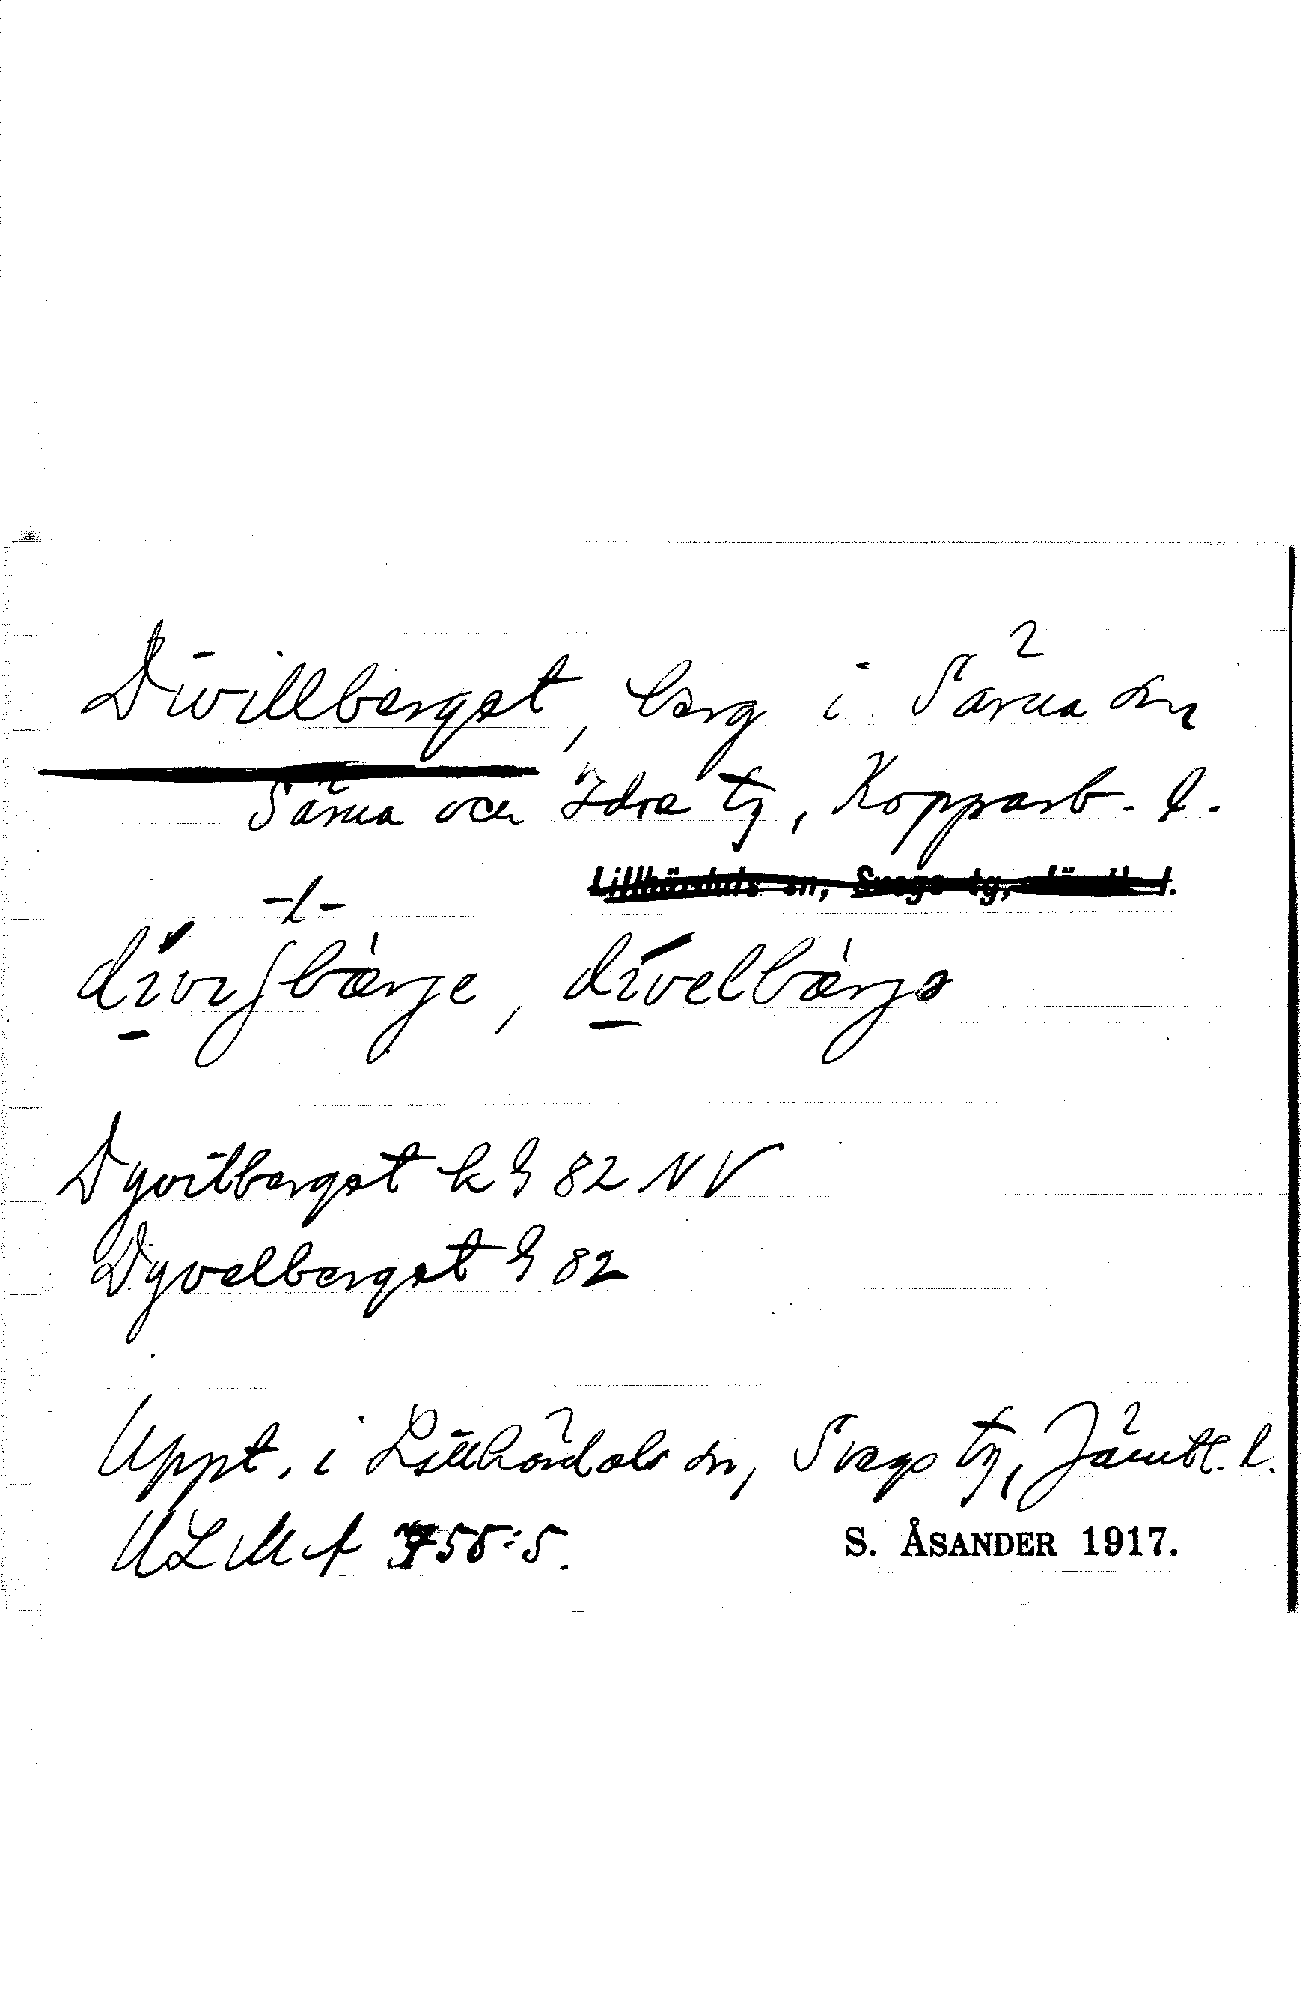 Divillberget, berg i Särna sn
Särna och Idre tg, Kopparb. l.
Lillhärdals sn, Svegs tg, Jämtl. l.
-l-
bærje, divelbærjə
Dyvilberget k G 82 NV
Dyvelberget G 82
Uppt. i Lillhärdals sn, Svegs tg, Jämtl. l.
ULMA 755:5.
S. ÅSANDER 1917.